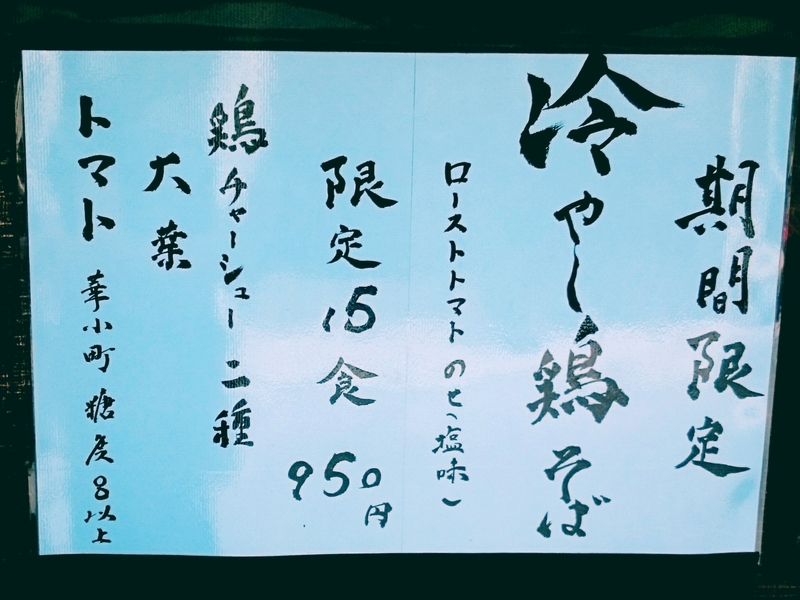 期間限定
冷やし鶏そば
ローストトマトのせ(塩味)
限定15食
950円
鶏チャーシュー二種
大葉
トマト 華小町 糖度8以上